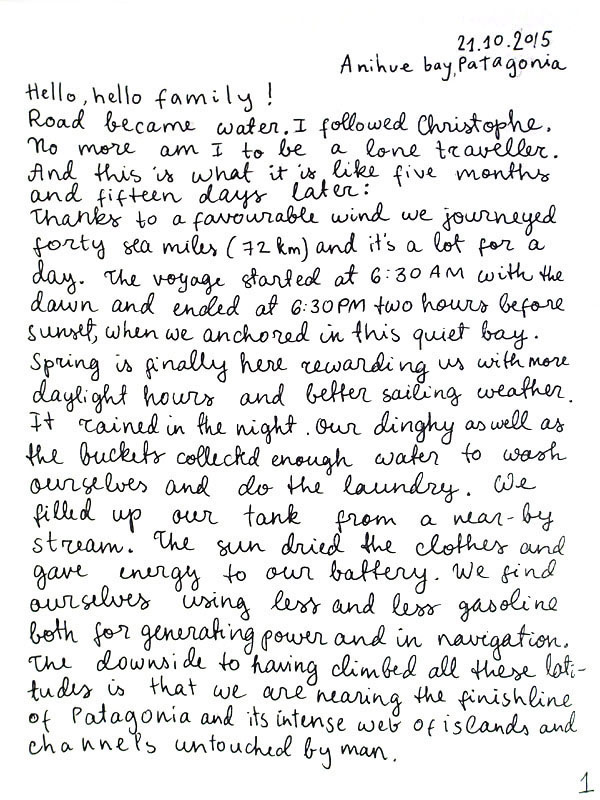 21.10.2015
Anihue bay, Patagonia
Hello, hello family!
Road became water. I followed Christophe.
No more am I to be a lone traveller.
And this is what it is like five months
and fifteen days later:
Thanks to a favourable wind we journeyed
forty sea miles (72 km) and it's a lot for a
day. The voyage started at 6:30 AM with the
dawn and ended at 6:30 PM two hours before
sunset, when we anchored in this quiet bay.
Spring is finally here rewarding us with more
daylight hours and better sailing weather.
It rained in the night. Our dinghy as well as
the buckets collected enough water to wash
ourselves and do the laundry. We
filled up our tank from a near-by
stream. The sun dried the clothes and
gave energy to our battery. We find
ourselves using less and less gasoline
both for generating power and in navigation.
The downside to having climbed all these lati-
tudes is that we are nearing the finishline
of Patagonia and its intense web of islands and
channels untouched by man.
1